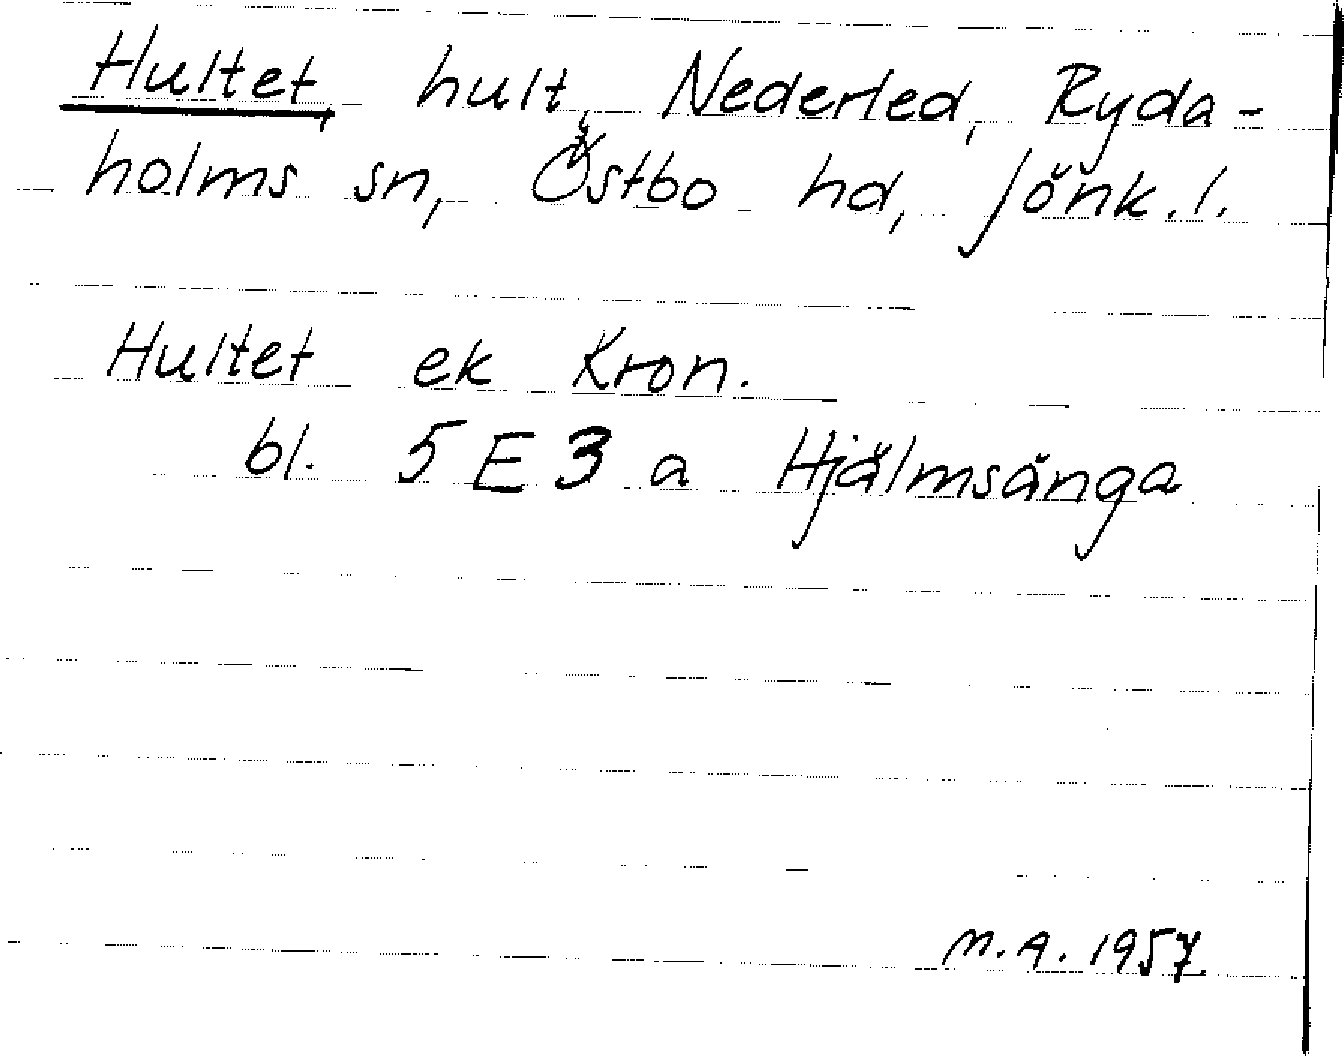 Hultet, hult, Nederled, Ryda-
holms sn, Östbo hd, Jönk. l.
Hultet ek Kron.
bl. 5 E 3 a Hjälmsänga
M. A. 1957